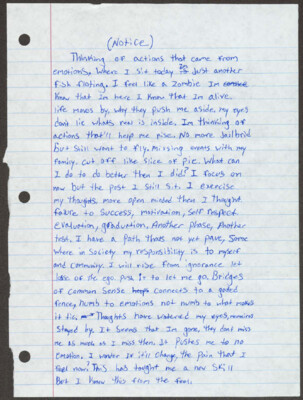 (Notice)
Thinking of actions that came from
emotions, Where I sit today Is Just another
fish floting. I feel like a Zombie Im
Know that Im here, I know that Im alive.
life moves by, why they push me aside. my eyes
dont lie whats now is inside. Im thinking of
actions that'll help me rise. No more Jailbird
but still want to fly. Missing events with my
family. Cut off like slice of pie. What can
I do to do better then I did? I focus on
now but the past I still sit. I exercise
my thoughts more open minded then I thought
failure to success, motivation, self respect.
evaluation, graduation, Another phase, Another
test. I have a path thats not yet pave, Some
where in society my responsibility is to myself
and community. I will rise from ignorance let
lose of the ego push it to let me go. Bridges
of common sense connects to a gated
fence, numb to emotions not numb to what makes
it fit. Thoughts have watered my eyes, memories
stayed by. It seems that Im gone, they dont miss
me as much as I miss them. It pushes me to no
emotion. I wonder if it'll change, the pain that I
feel now? This has taught me a new skill
But I know this from the feel.